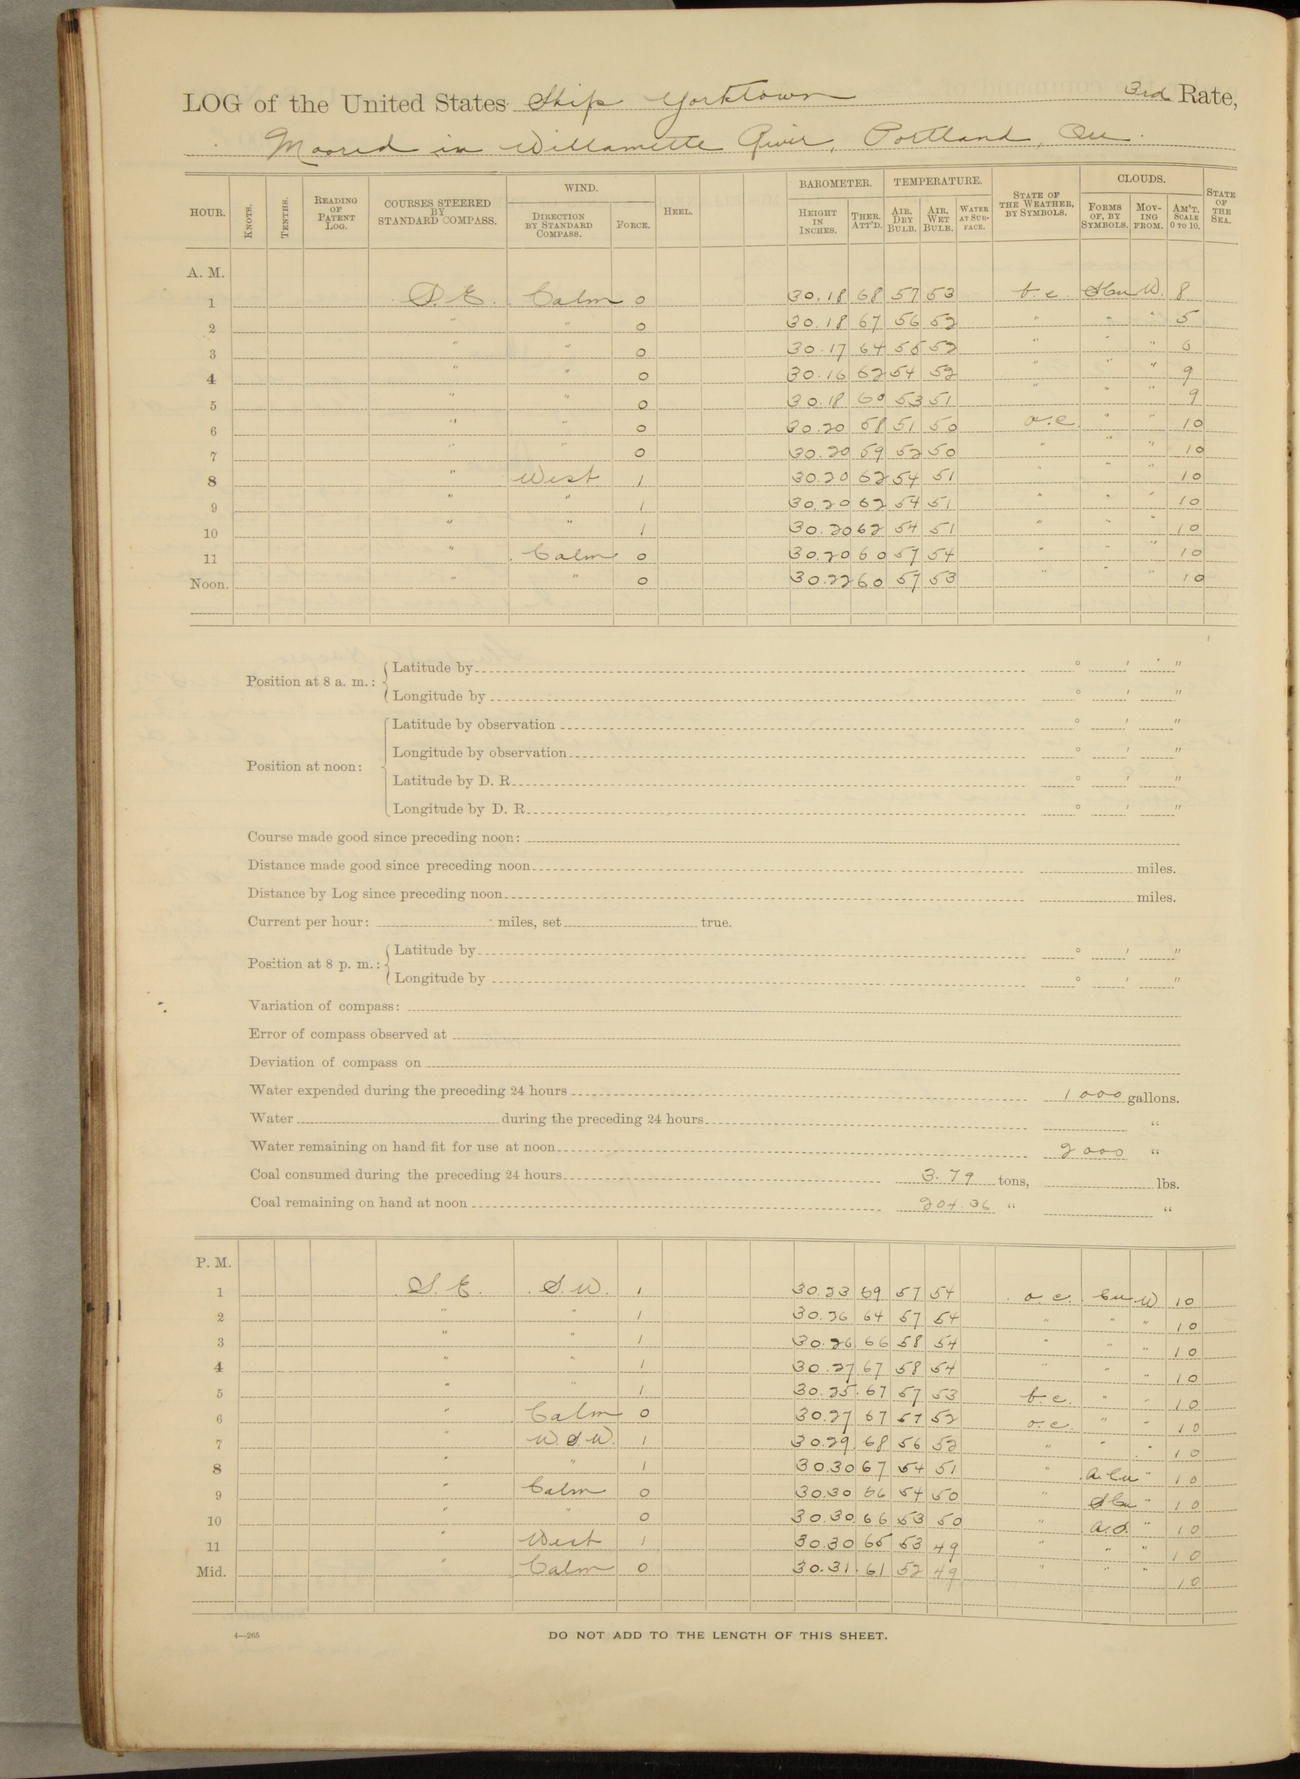 LOG of the United States Ship Yorktown 3rd Rate,
Moored in Willamette River, Portland, Ore.
HOUR. KNOTS. TENTHS. READING OF PATENT LOG. COURSES STEERED BY STANDARD COMPASS. WIND. DIRECTION BY STANDARD COMPASS. FORCE. HEEL. BAROMETER. HEIGHT IN INCHES. THER. ATT'D. TEMPERATURE. AIR, DRY BULB. AIR, WET BULB. WATER AT SURFACE. STATE OF THE WEATHER, BY SYMBOLS. CLOUDS. FORMS OF, BY SYMBOLS. MOVING FROM. AM'T, SCALE 0 TO 10. STATE OF THE SEA.
A. M.
1 S. E. Calm 0 30.18 68 57 53 b.c. SCu W. 8
2 " " 0 30.18 67 56 52 " " " 5
3 " " 0 30.17 64 55 52 " " " 6
4 " " 0 30.16 62 54 52 " " " 9
5 " " 0 30.18 60 53 51 " " " 9
6 " " 0 30.20 58 51 50 o.c. " " 10
7 " " 0 30.20 59 52 50 " " " 10
8 " West 1 30.20 62 54 51 " " " 10
9 " " 1 30.20 62 54 51 " " " 10
10 " " 1 30.20 62 54 51 " " " 10
11 " Calm 0 30.20 60 57 54 " " " 10
Noon. " " 0 30.22 60 57 53 " " " 10
Position at 8 a. m.: Latitude by ° ' "
Longitude by ° ' "
Position at noon: Latitude by observation ° ' "
Longitude by observation ° ' "
Latitude by D. R. ° ' "
Longitude by D. R. ° ' "
Course made good since preceding noon:
Distance made good since preceding noon miles.
Distance by Log since preceding noon miles.
Current per hour: miles, set true.
Position at 8 p. m.: Latitude by ° ' "
Longitude by ° ' "
Variation of compass:
Error of compass observed at
Deviation of compass on
Water expended during the preceding 24 hours 1000 gallons.
Water during the preceding 24 hours "
Water remaining on hand fit for use at noon 2000 "
Coal consumed during the preceding 24 hours 3.79 tons, lbs.
Coal remaining on hand at noon 204.36 " "
P. M.
1 S. E. S.W. 1 30.23 69 57 54 o.c. Cu W 10
2 " " 1 30.26 64 57 54 " " " 10
3 " " 1 30.26 66 58 54 " " " 10
4 " " 1 30.27 67 58 54 " " " 10
5 " " 1 30.25 67 57 53 b.c. " " 10
6 " Calm 0 30.27 67 57 52 o.c. " " 10
7 " W.S.W. 1 30.29 68 56 52 " " " 10
8 " " 1 30.30 67 54 51 " A.Cu " 10
9 " Calm 0 30.30 66 54 50 " SCu " 10
10 " " 0 30.30 66 53 50 " A.S. " 10
11 " West 1 30.30 65 53 49 " " " 10
Mid. " Calm 0 30.31 61 52 49 " " " 10
4—265
DO NOT ADD TO THE LENGTH OF THIS SHEET.